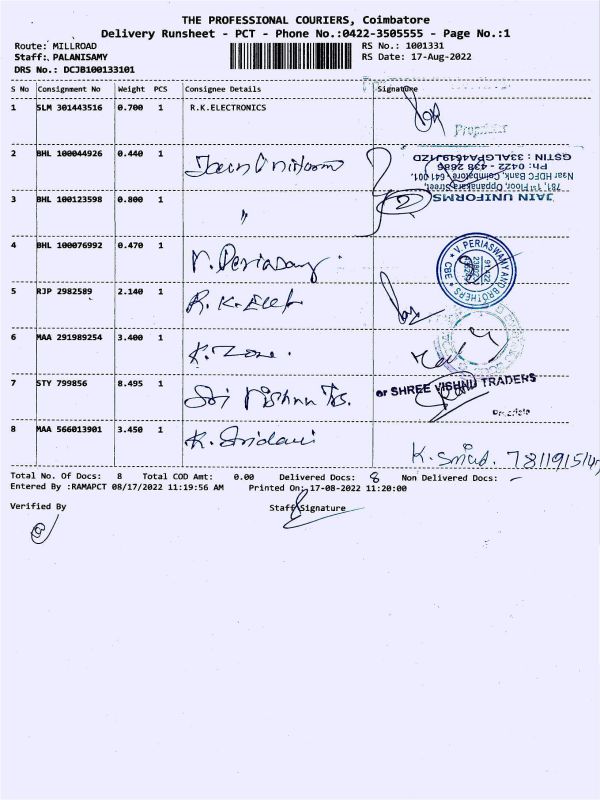 THE PROFESSIONAL COURIERS, Coimbatore
Delivery Runsheet - PCT - Phone No.:0422-3505555 - Page No.:1
Route: MILLROAD RS No.: 1001331
Staff: PALANISAMY RS Date: 17-Aug-2022
DRS No.: DCJB100133101
S No Consignment No Weight PCS Consignee Details Signature
1 SLM 301443516 0.700 1 R.K.ELECTRONICS
Proprietor
2 BHL 100044926 0.440 1 Jain Uniform
JAIN UNIFORMS
781, 1st Floor, Oppanakara Street,
Near HDFC Bank, Coimbatore - 641 001.
Ph: 0422 - 438 2686
3 BHL 100123598 0.800 1 "
4 BHL 100076992 0.470 1 V. Periasamy
V. PERIASWAMY AND BROTHERS ★ CBE ★
5 RJP 2982589 2.140 1 R. K. Elect
6 MAA 291989254 3.400 1 K. Zone.
7 STY 799856 8.495 1 Sri Vishnu Trs.
or SHREE VISHNU TRADERS
8 MAA 566013901 3.450 1 K. Sridavi
Total No. Of Docs: 8 Total COD Amt: 0.00 Delivered Docs: 8 Non Delivered Docs: -
Entered By :RAMAPCT 08/17/2022 11:19:56 AM Printed On: 17-08-2022 11:20:00
Verified By Staff Signature